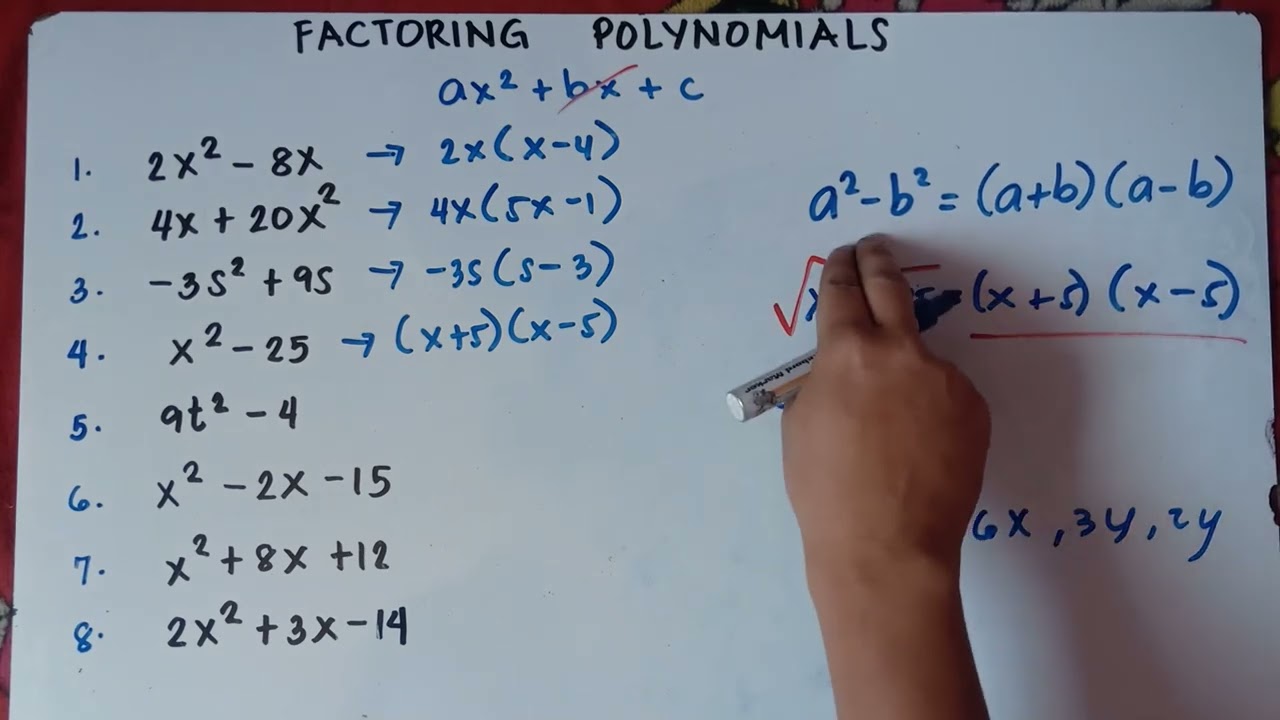 FACTORING POLYNOMIALS
ax² + bx + c
1. 2x² - 8x → 2x(x-4)
2. 4x + 20x² → 4x(5x-1)
3. -3s² + 9s → -3s(s-3)
4. x² - 25 → (x+5)(x-5)
5. 9t² - 4
6. x² - 2x - 15
7. x² + 8x + 12
8. 2x² + 3x - 14
a² - b² = (a+b)(a-b)
(x+5)(x-5)
6x, 3y, 2y